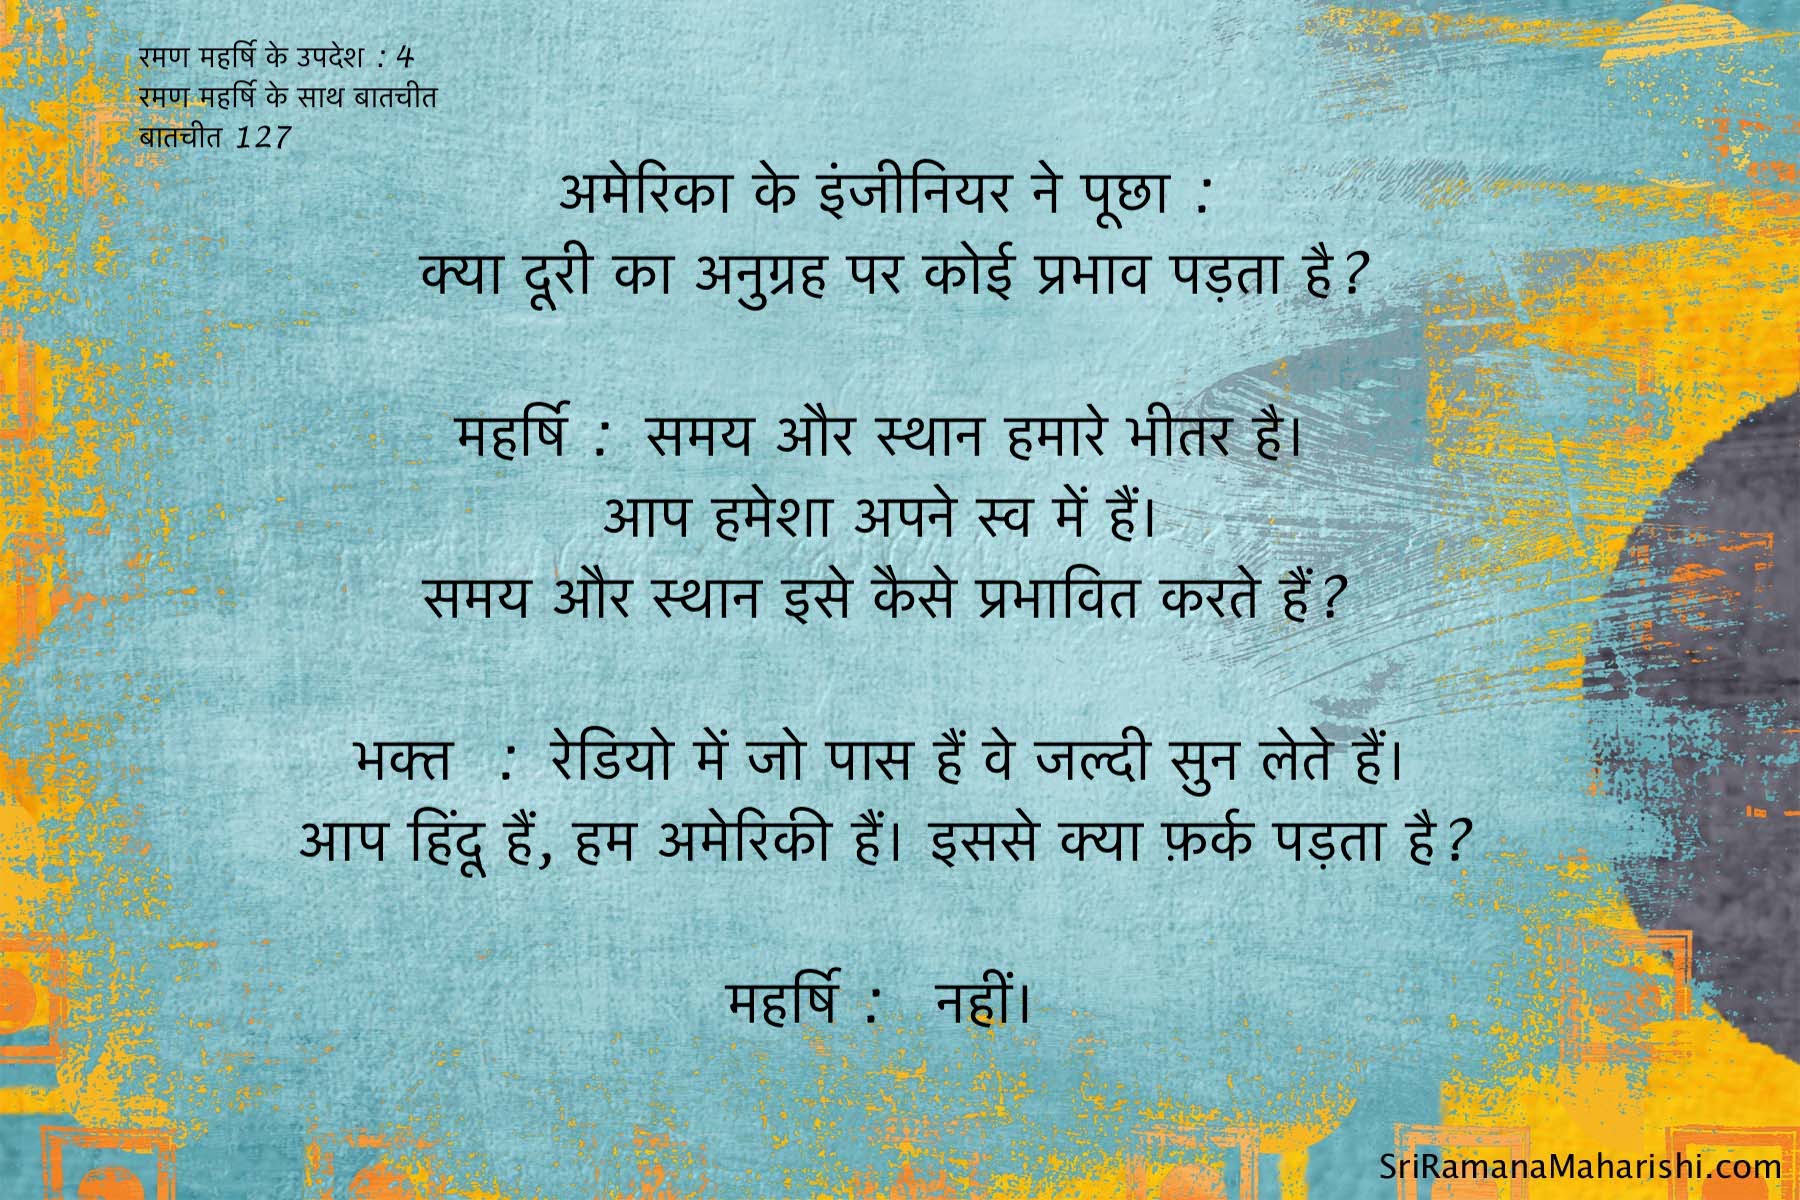 रमण महर्षि के उपदेश : 4
रमण महर्षि के साथ बातचीत
बातचीत 127
अमेरिका के इंजीनियर ने पूछा :
क्या दूरी का अनुग्रह पर कोई प्रभाव पड़ता है?
महर्षि : समय और स्थान हमारे भीतर है।
आप हमेशा अपने स्व में हैं।
समय और स्थान इसे कैसे प्रभावित करते हैं?
भक्त : रेडियो में जो पास हैं वे जल्दी सुन लेते हैं।
आप हिंदू हैं, हम अमेरिकी हैं। इससे क्या फ़र्क पड़ता है?
महर्षि : नहीं।
SriRamanaMaharishi.com